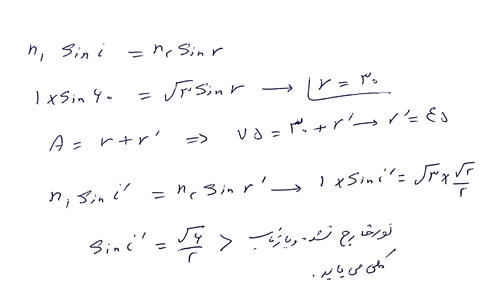 n₁ sin i = n₂ sin r
۱ × sin ۶۰ = √۳ sin r → r = ۳۰
A = r + r' ⇒ ۷۵ = ۳۰ + r' → r' = ۴۵
n₁ sin i' = n₂ sin r' → ۱ × sin i' = √۳ × √۲/۲
sin i' = √۶/۲ > نور خارج نشده و بازتاب
کلی می یابد.